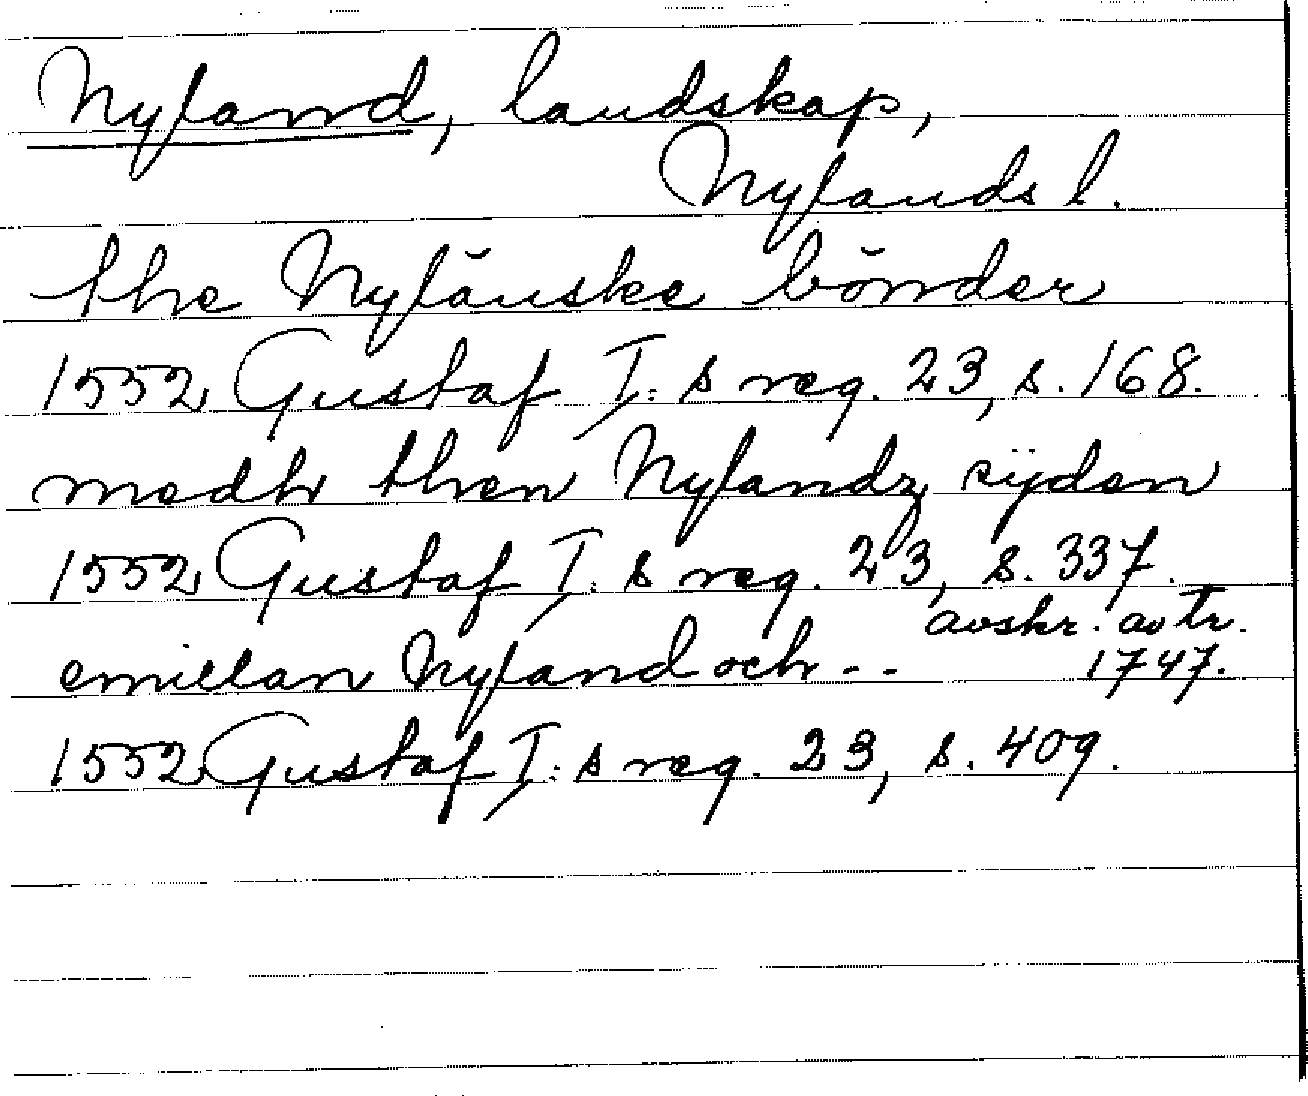 Nyland, landskap,
Nylands l.
the Nylänske bönder
1552 Gustaf I: s reg. 23, s. 168.
medh then Nylandz sijden
1552 Gustaf I: s reg. 23, s. 337.
avskr. av tr.
emillan Nyland och --
1747.
1552 Gustaf I: s reg. 23, s. 409.